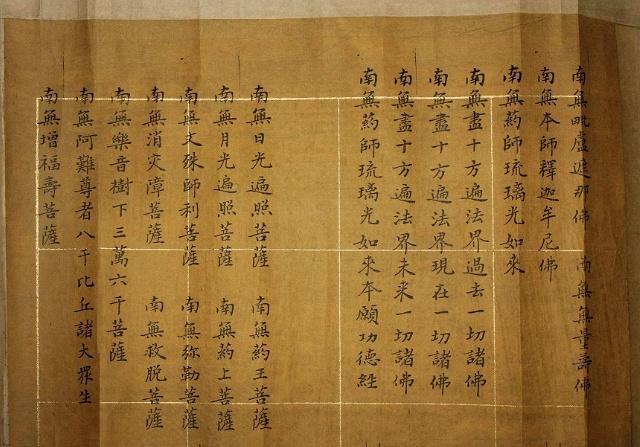 南無毗盧遮那佛　南無無量壽佛
南無本師釋迦牟尼佛
南無藥師琉璃光如來
南無盡十方遍法界過去一切諸佛
南無盡十方遍法界現在一切諸佛
南無盡十方遍法界未来一切諸佛
南無藥師琉璃光如來本願功德經
南無日光遍照菩薩　南無藥王菩薩
南無月光遍照菩薩　南無藥上菩薩
南無文殊師利菩薩　南無弥勒菩薩
南無消灾障菩薩　南無救脱菩薩
南無樂音樹下三萬六千菩薩
南無阿難尊者八千比丘諸大衆生
南無增福壽菩薩